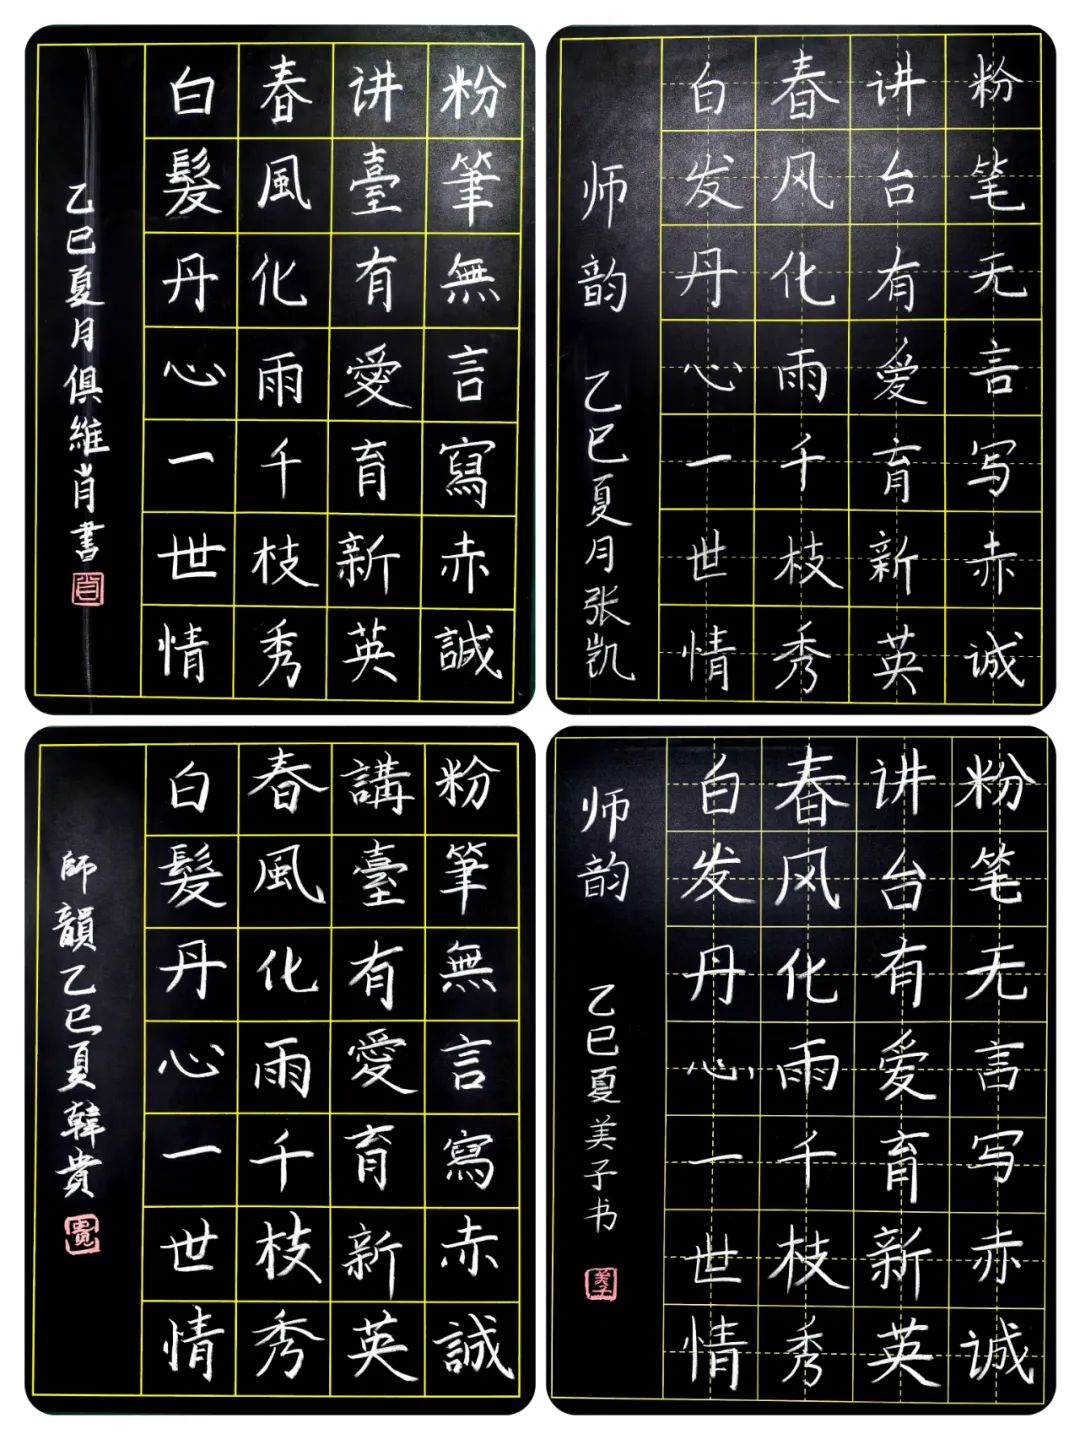 粉筆無言寫赤誠
讲臺有愛育新英
春風化雨千枝秀
白髮丹心一世情
乙巳夏月俱維肖書
肖
粉笔无言写赤诚
讲台有爱育新英
春风化雨千枝秀
白发丹心一世情
师韵
乙巳夏月张凯
粉筆無言寫赤誠
講臺有愛育新英
春風化雨千枝秀
白髮丹心一世情
師韻乙巳夏韓貴
貴
粉笔无言写赤诚
讲台有爱育新英
春风化雨千枝秀
白发丹心一世情
师韵
乙巳夏美子书
美子